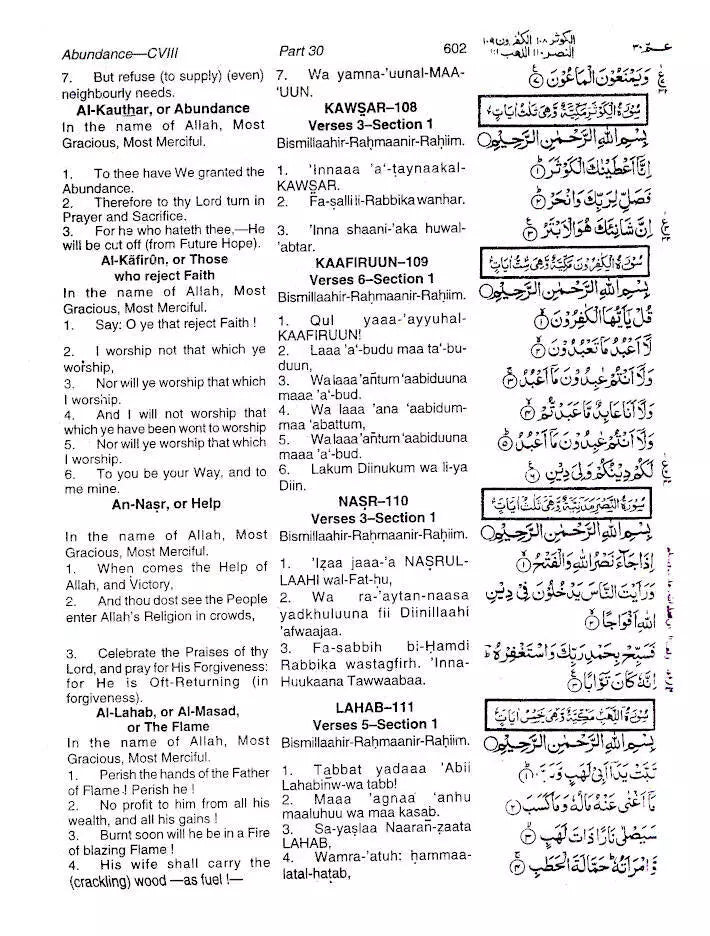 Abundance—CVIII
Part 30
602
الكوثر ١٠٨ الكفرون ١٠٩
النصر ١١٠ اللهب ١١١
عم ٣٠
7. But refuse (to supply) (even)
neighbourly needs.
Al-Kauthar, or Abundance
In the name of Allah, Most
Gracious, Most Merciful.
1. To thee have We granted the
Abundance.
2. Therefore to thy Lord turn in
Prayer and Sacrifice.
3. For he who hateth thee,—He
will be cut off (from Future Hope).
Al-Kāfirûn, or Those
who reject Faith
In the name of Allah, Most
Gracious, Most Merciful.
1. Say: O ye that reject Faith !
2. I worship not that which ye
worship,
3. Nor will ye worship that which
I worship.
4. And I will not worship that
which ye have been wont to worship
5. Nor will ye worship that which
I worship.
6. To you be your Way, and to
me mine.
An-Naṣr, or Help
In the name of Allah, Most
Gracious, Most Merciful.
1. When comes the Help of
Allah, and Victory,
2. And thou dost see the People
enter Allah's Religion in crowds,
3. Celebrate the Praises of thy
Lord, and pray for His Forgiveness:
for He is Oft-Returning (in
forgiveness).
Al-Lahab, or Al-Masad,
or The Flame
In the name of Allah, Most
Gracious, Most Merciful.
1. Perish the hands of the Father
of Flame ! Perish he !
2. No profit to him from all his
wealth, and all his gains !
3. Burnt soon will he be in a Fire
of blazing Flame !
4. His wife shall carry the
(crackling) wood —as fuel !—
7. Wa yamna-'uunal-MAA-
'UUN.
KAWṢAR–108
Verses 3–Section 1
Bismillaahir-Raḥmaanir-Raḥiim.
1. 'Innaaa 'a‘-ṭaynaakal-
KAWṢAR.
2. Fa-ṣalli li-Rabbika wanḥar.
3. 'Inna shaani-'aka huwal-
'abtar.
KAAFIRUUN–109
Verses 6–Section 1
Bismillaahir-Raḥmaanir-Raḥiim.
1. Qul yaaa-'ayyuhal-
KAAFIRUUN!
2. Laaa 'a‘-budu maa ta‘-bu-
duun,
3. Wa laaa 'añtum ‘aabiduuna
maaa 'a‘-bud.
4. Wa laaa 'ana ‘aabidum-
maa ‘abattum,
5. Wa laaa 'añtum ‘aabiduuna
maaa 'a‘-bud.
6. Lakum Diinukum wa li-ya
Diin.
NAṢR–110
Verses 3–Section 1
Bismillaahir-Raḥmaanir-Raḥiim.
1. 'Iẓaa jaaa-'a NAṢRUL-
LAAHI wal-Fat-ḥu,
2. Wa ra-'aytan-naasa
yadkhuluuna fii Diinillaahi
'afwaajaa.
3. Fa-sabbih bi-Ḥamdi
Rabbika wastagfirh. 'Inna-
Huukaana Tawwaabaa.
LAHAB–111
Verses 5–Section 1
Bismillaahir-Raḥmaanir-Raḥiim.
1. Tabbat yadaaa 'Abii
Lahabiñw-wa tabb!
2. Maaa 'agnaa ‘anhu
maaluhuu wa maa kasab.
3. Sa-yaṣlaa Naarañ-ẓaata
LAHAB,
4. Wamra-'atuh: ḥammaa-
latal-ḥaṭab,
وَيَمْنَعُوْنَ الْمَاعُوْنَ ۝٧
سُوْرَةُ الْكَوْثَرِ مَكِّيَّةٌ وَّهِيَ ثَلٰثُ اٰيَاتٍ
بِسْمِ اللهِ الرَّحْمٰنِ الرَّحِيْمِ
اِنَّاۤ اَعْطَيْنٰكَ الْكَوْثَرَ ۝١
فَصَلِّ لِرَبِّكَ وَانْحَرْ ۝٢
اِنَّ شَانِئَكَ هُوَ الْاَبْتَرُ ۝٣
سُوْرَةُ الْكٰفِرُوْنَ مَكِّيَّةٌ وَّهِيَ سِتُّ اٰيَاتٍ
بِسْمِ اللهِ الرَّحْمٰنِ الرَّحِيْمِ
قُلْ يٰۤاَيُّهَا الْكٰفِرُوْنَ ۝١
لَاۤ اَعْبُدُ مَا تَعْبُدُوْنَ ۝٢
وَلَاۤ اَنْتُمْ عٰبِدُوْنَ مَاۤ اَعْبُدُ ۝٣
وَلَاۤ اَنَا عَابِدٌ مَّا عَبَدْتُّمْ ۝٤
وَلَاۤ اَنْتُمْ عٰبِدُوْنَ مَاۤ اَعْبُدُ ۝٥
لَكُمْ دِيْنُكُمْ وَلِيَ دِيْنِ ۝٦
سُوْرَةُ النَّصْرِ مَدَنِيَّةٌ وَّهِيَ ثَلٰثُ اٰيَاتٍ
بِسْمِ اللهِ الرَّحْمٰنِ الرَّحِيْمِ
اِذَا جَآءَ نَصْرُ اللهِ وَالْفَتْحُ ۝١
وَرَاَيْتَ النَّاسَ يَدْخُلُوْنَ فِيْ دِيْنِ
اللهِ اَفْوَاجًا ۝٢
فَسَبِّحْ بِحَمْدِ رَبِّكَ وَاسْتَغْفِرْهُ
اِنَّهٗ كَانَ تَوَّابًا ۝٣
سُوْرَةُ اللَّهَبِ مَكِّيَّةٌ وَّهِيَ خَمْسُ اٰيَاتٍ
بِسْمِ اللهِ الرَّحْمٰنِ الرَّحِيْمِ
تَبَّتْ يَدَاۤ اَبِيْ لَهَبٍ وَّتَبَّ ۝١
مَاۤ اَغْنٰى عَنْهُ مَالُهٗ وَمَا كَسَبَ ۝٢
سَيَصْلٰى نَارًا ذَاتَ لَهَبٍ ۝٣
وَّامْرَاَتُهٗ حَمَّالَةَ الْحَطَبِ ۝٤